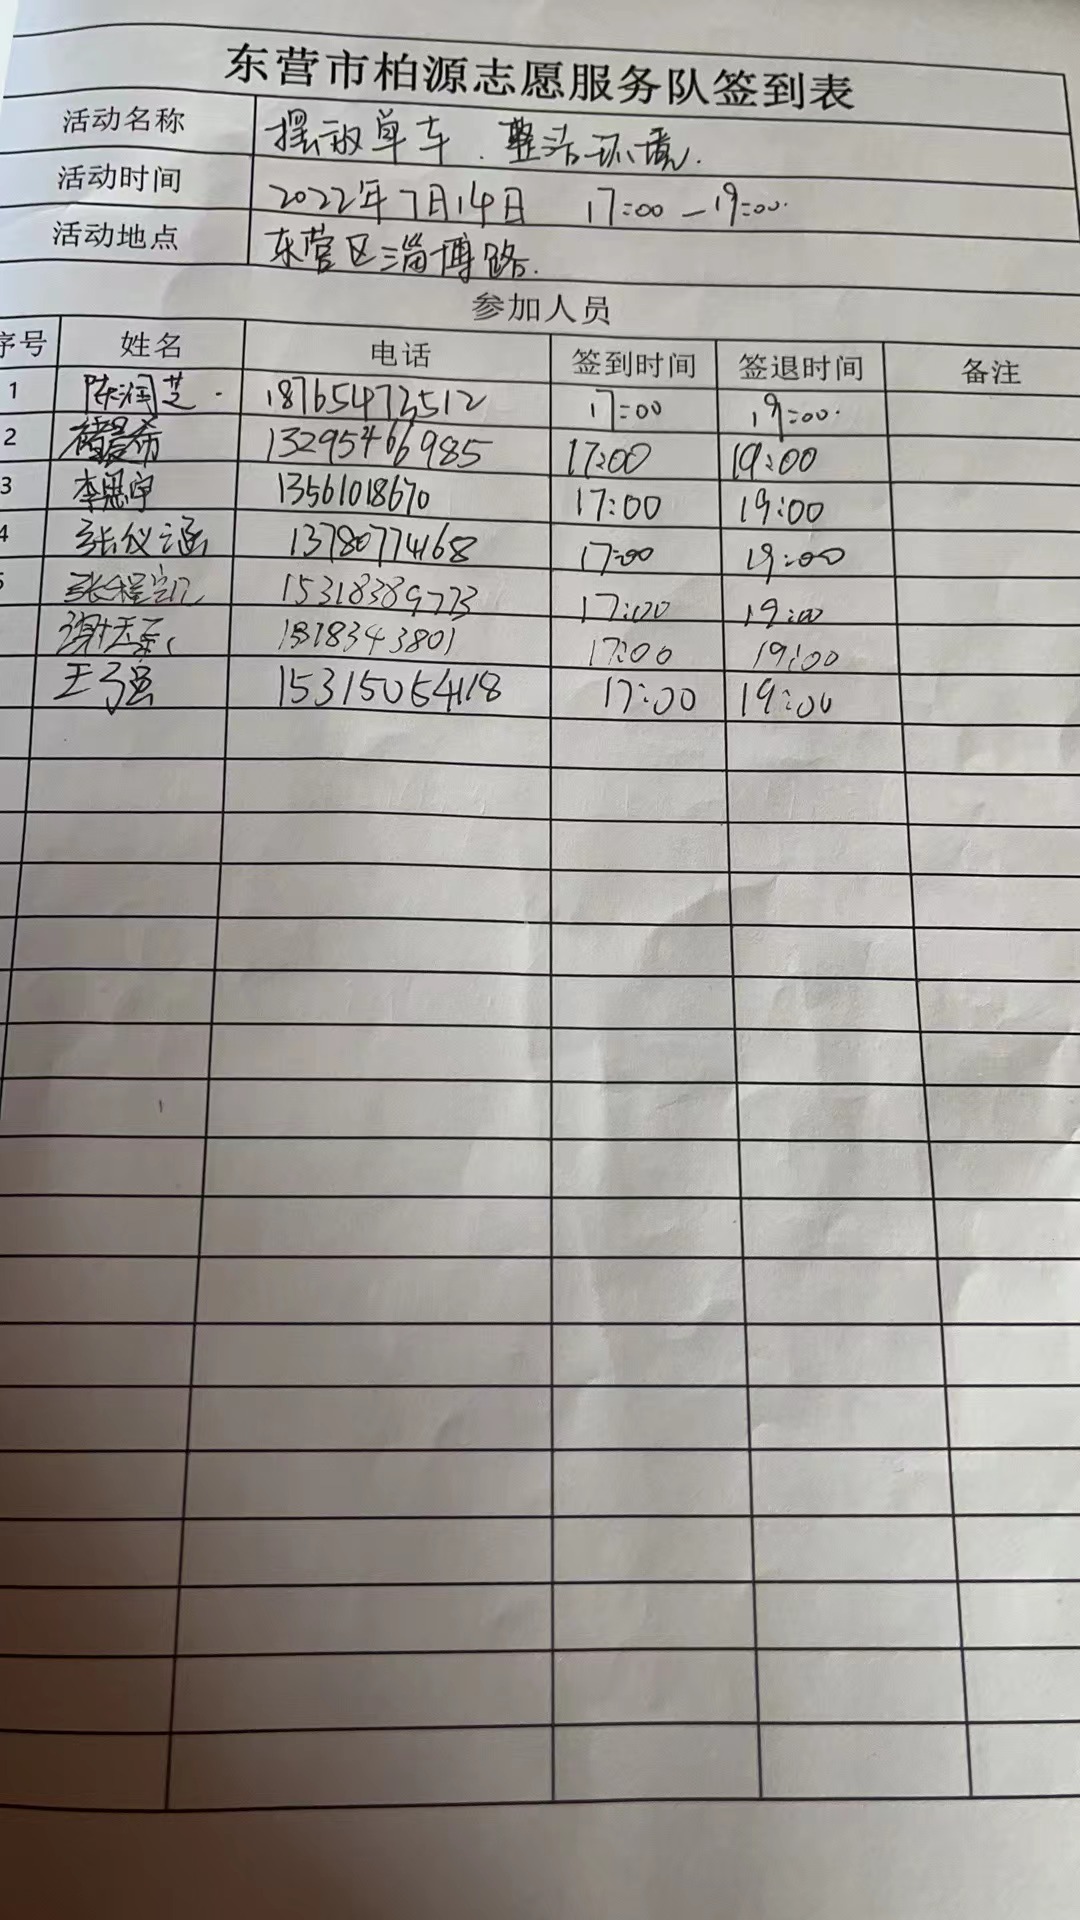 东营市柏源志愿服务队签到表
活动名称 摆放单车、整洁环境.
活动时间 2022年7月14日 17:00—19:00.
活动地点 东营区淄博路.
参加人员
序号 姓名 电话 签到时间 签退时间 备注
1 陈润芝 18765472512 17:00 19:00.
2 褚晨希 13295466985 17:00 19:00
3 李思宇 13561018670 17:00 19:00
4 张仪涵 13780774168 17:00 19:00
5 张程 15318389773 17:00 19:00
谢 17:00 19:00
王子强 15315054118 17:00 19:00